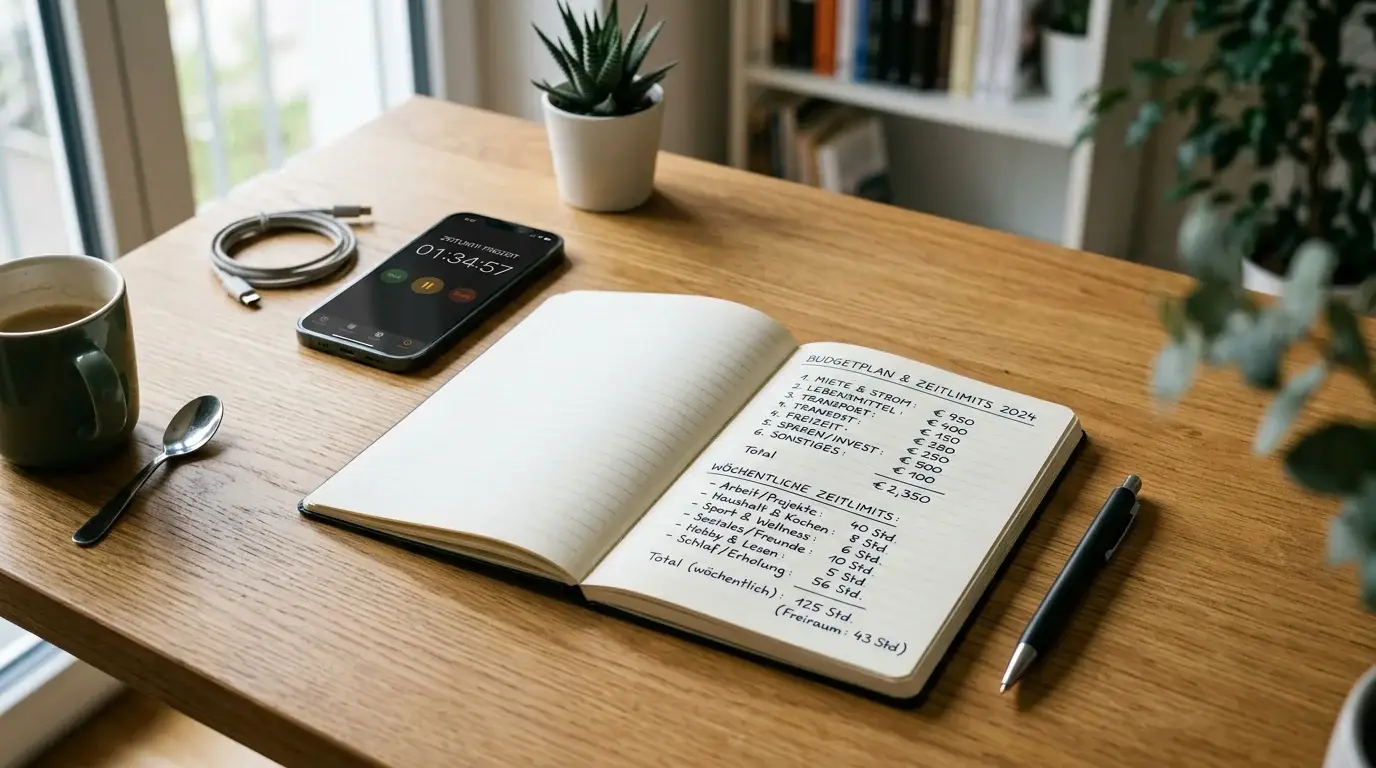 01:34:57
BUDGETPLAN & ZEITLIMITS 2024
1. MIETE & STROM: € 950
2. LEBENSMITTEL: € 400
3. TRANSPORT: € 150
€ 280
4. FREIZEIT: € 250
5. SPAREN/INVEST: € 500
6. SONSTIGES: € 100
Total € 2,350
WÖCHENTLICHE ZEITLIMITS:
- Arbeit/Projekte: 40 Std.
- Haushalt & Kochen: 8 Std.
- Sport & Wellness: 6 Std.
- Soziales/Freunde: 10 Std.
- Hobby & Lesen: 5 Std.
- Schlaf/Erholung: 56 Std.
Total (wöchentlich): 125 Std.
(Freiraum: 43 Std)